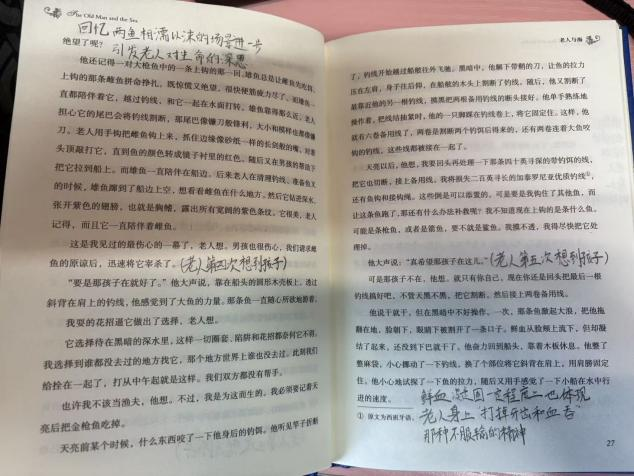 The Old Man and the Sea
回忆两鱼相濡以沫的场景进一步
引发老人对生命的深思
绝望了呢？
他还记得一对大枪鱼中的一条上钩的那一回。雄鱼总是让雌鱼先吃饵，
上钩的那条雌鱼拼命挣扎，既惊慌又绝望，很快便筋疲力尽了。而雄鱼一
直都陪伴着它，越过钓线，和它一起在水面打转。雄鱼靠得那么近，老人
担心它的尾巴会将钓线割断，那尾巴像镰刀般锋利，大小和模样也都像镰
刀。老人用手钩把雌鱼钩上来，抓住边缘像砂纸一样的长剑般的嘴，对着
头顶敲打它，直到鱼的颜色转成镜子衬里的红色，随后又在男孩的帮助下
把它拉到船上。而雄鱼一直陪伴在船边。后来老人在清理钓线、准备鱼叉
的时候，雄鱼蹿到了船边上空，想看看雌鱼在什么地方，然后它钻进深水，
张开紫色的翅膀，也就是胸鳍，露出所有宽阔的紫色条纹，它很美，老人
记得，而且它一直陪伴着雌鱼。
这是我见过的最伤心的一幕了，老人想。男孩也很伤心，我们请求雌
鱼的原谅后，迅速将它宰杀了。（老人第四次想到孩子）
“要是那孩子在就好了。”他大声说，靠在船头的圆形木壳板上，透过
斜背在肩上的钓线，他感觉到了大鱼的力量。那条鱼一直随心所欲地游着。
我要的花招逼它做出了选择，老人想。
它选择待在黑暗的深水里，这样一切圈套、陷阱和花招都奈何它不得。
我选择到谁都没去过的地方找它，那个地方世界上谁也没去过。此刻我们
给拴在一起了，打从中午起就是这样。我们双方都没有帮手。
也许我不该当渔夫，他想。不过，我是为这而生的。我必须要记着天
亮后把金枪鱼吃掉。
天亮前某个时候，什么东西咬了一下他身后的钓饵。他听见竿子折断
老人与海
了，钓线开始越过船舷往外飞驰。黑暗中，他解下带鞘的刀，让鱼的拉力
压在左肩，身子往后仰，在船舷的木头上割断了钓线。随后，他又割断了
最靠近他的另一根钓线，摸黑把两根备用钓线的断头接好。他单手熟练地
操作着，把线结抽紧时，他的一只脚踩在钓线卷上，将它固定住。这样，他
就有六卷备用线了，两卷是割断两个钓饵后得来的，还有两卷连着大鱼咬
钩的钓线，这些线都被接在一起了。
天亮以后，他想，我要回头再处理一下那条四十英寻深的带钓饵的线，
把它也切断，接上备用线。我将损失二百英寻长的加泰罗尼亚优质的线①，
还有鱼钩和接钩绳。这些倒是可以添置的，可是要是我钩住了其他鱼，而
让这条鱼跑了，那还有什么办法补救呢？我不知道现在上钩的是条什么鱼，
可能是条枪鱼，或者是箭鱼，要不就是鲨鱼。我摸不透，我得尽快把它处
理掉。
他大声说：“真希望那孩子在这儿。”（老人第五次想到孩子）
可是那孩子不在，他想。就只有你自己，现在你还是回去把最后一根
钓线搞好吧，不管天黑不黑，把它割断，然后接上两卷备用线。
他说干就干，但在黑暗中不好操作。一次，那条鱼掀起大浪，把他拖
翻在地，脸朝下，眼睛下被割开了一条口子。鲜血从脸颊上流下，但却凝
结了起来，还没到下巴就干了。他奋力回到船头，靠着木板休息。他整了
整麻袋，小心挪动了一下钓线，换了个部位将它斜背在肩上，用肩膀固定
住。他小心地试探了一下鱼的拉力，随后又用手感觉了一下小船在水中行
进的速度。
鲜血凝固一定程度上也体现
老人身上“打掉牙齿和血吞”
那种不服输的精神
① 原文为西班牙语。
27